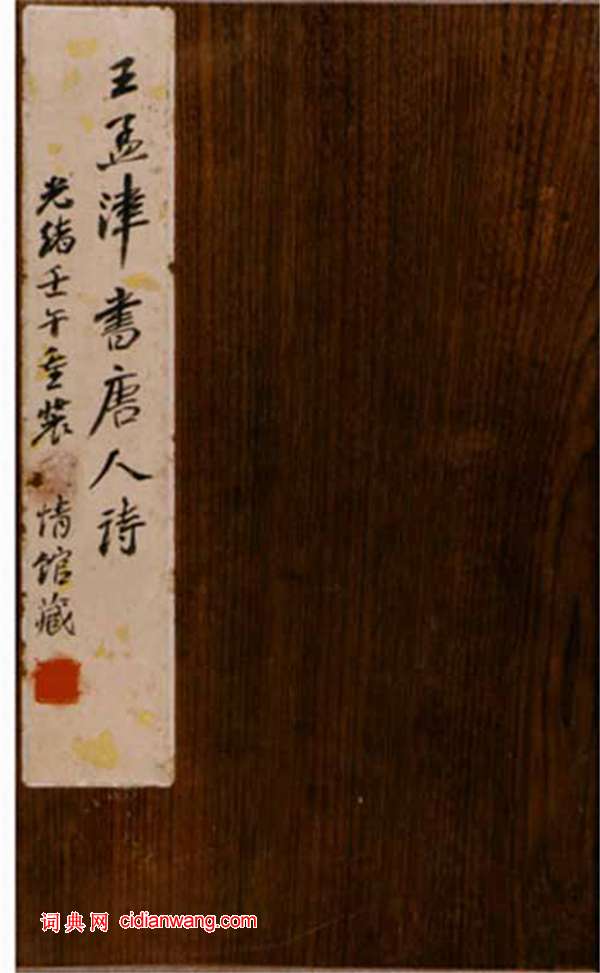 王孟津書唐人詩
光緒壬午重裝 情馆藏
词典网 cidianwang.com